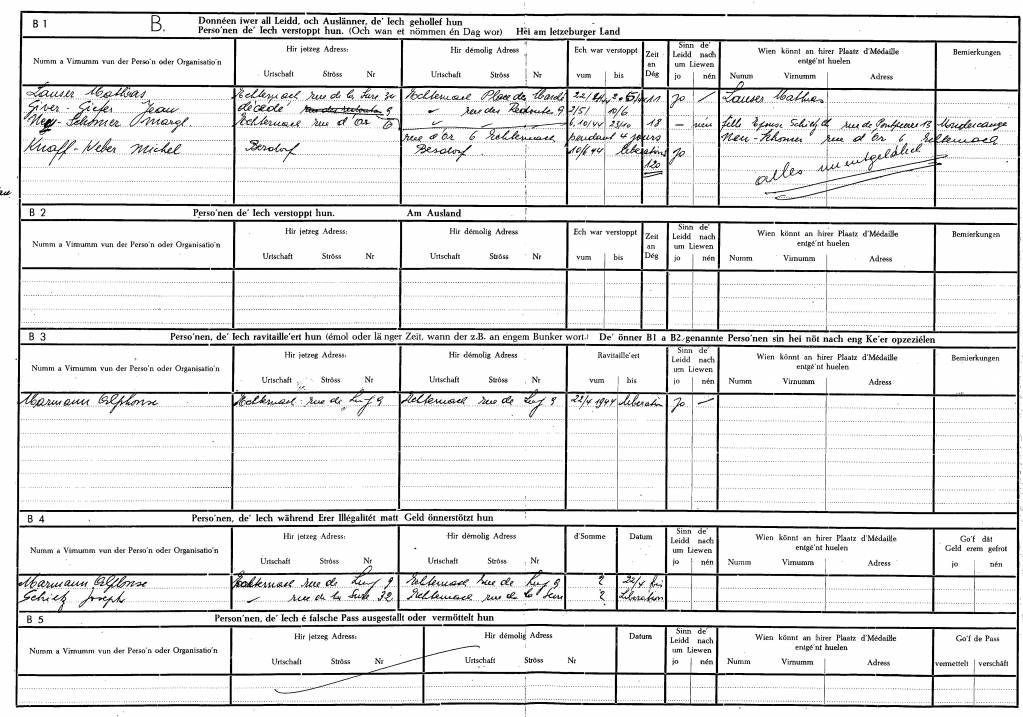 B 1 B. Donnéen iwer all Leidd, och Auslänner, de' Iech gehollef hun
Perso'nen de' Iech verstoppt hun. (Och wan et nömmen én Dag wor) Hei am letzeburger Land
Numm a Virnumm vun der Perso'n oder Organisatio'n Hir jetzeg Adress: Hir démolig Adress Ech war verstoppt Zeit an Dég Sinn de' Leidd nach um Liewen Wien könnt an hirer Plaatz d'Médaille entgé'nt huelen Bemierkungen
Urtschaft Ströss Nr Urtschaft Ströss Nr vum bis jo nén Numm Virnumm Adress
Lauser Mathias Echternach rue de la Sure Echternach Place du Marché 11 Jo Lauser Mathias
Giver - Giefer Jean décédé 9 rue des Redoute 9 2/5/ 10/6
Neu - Schomer Margl. Echternach rue d'Or 6 6.10/44 23/10 18 — nein
rue d'Or 6 Echternach pendant 4 jours Neu - Schomer rue d'Or 6 Echternach
Knaff - Weber Michel Berdorf Berdorf 10/6 44 Liberation Jo
120
alles unentgeldlich
B 2 Perso'nen de' Iech verstoppt hun. Am Ausland
Numm a Virnumm vun der Perso'n oder Organisatio'n Hir jetzeg Adress: Hir démolig Adress Ech war verstoppt Zeit an Dég Sinn de' Leidd nach um Liewen Wien könnt an hirer Plaatz d'Médaille entgé'nt huelen Bemierkungen
Urtschaft Ströss Nr Urtschaft Ströss Nr vum bis jo nén Numm Virnumm Adress
B 3 Perso'nen, de' Iech ravitaille'ert hun (émol oder länger Zeit, wann der z.B. an engem Bunker wort.) De' önner B1 a B2 genannte Perso'nen sin hei nöt nach eng Ke'er opzezielen
Numm a Virnumm vun der Perso'n oder Organisatio'n Hir jetzeg Adress: Hir démolig Adress Ravitaille'ert Sinn de' Leidd nach um Liewen Wien könnt an hirer Plaatz d'Médaille entgé'nt huelen Bemierkungen
Urtschaft Ströss Nr Urtschaft Ströss Nr vum bis jo nén Numm Virnumm Adress
Marmann Alphonse Echternach rue de Lux 9 Echternach rue de Lux 9 22/4 1944 Liberation Jo —
B 4 Perso'nen, de' Iech während Erer Illégalitét matt Geld önnerstötzt hun
Numm a Virnumm vun der Perso'n oder Organisatio'n Hir jetzeg Adress: Hir démolig Adress d'Somme Datum Sinn de' Leidd nach um Liewen Wien könnt an hirer Plaatz d'Médaille entgé'nt huelen Go'f dât Geld erem gefrot
Urtschaft Ströss Nr Urtschaft Ströss Nr jo nén Numm Virnumm Adress jo nén
Marmann Alphonse Echternach rue de Lux 9 Echternach rue de Lux 9 ? 22/4 bis
Schiltz Joseph " rue de la Sure 32 Echternach rue de la Sure ? Liberation
B 5 Perso'nen, de' Iech é falsche Pass ausgestallt oder vermöttelt hun
Numm a Virnumm vun der Perso'n oder Organisatio'n Hir jetzeg Adress: Hir démolig Adress Datum Sinn de' Leidd nach um Liewen Wien könnt an hirer Plaatz d'Médaille entgé'nt huelen Go'f de Pass
Urtschaft Ströss Nr Urtschaft Ströss Nr jo nén Numm Virnumm Adress vermettelt verschâft